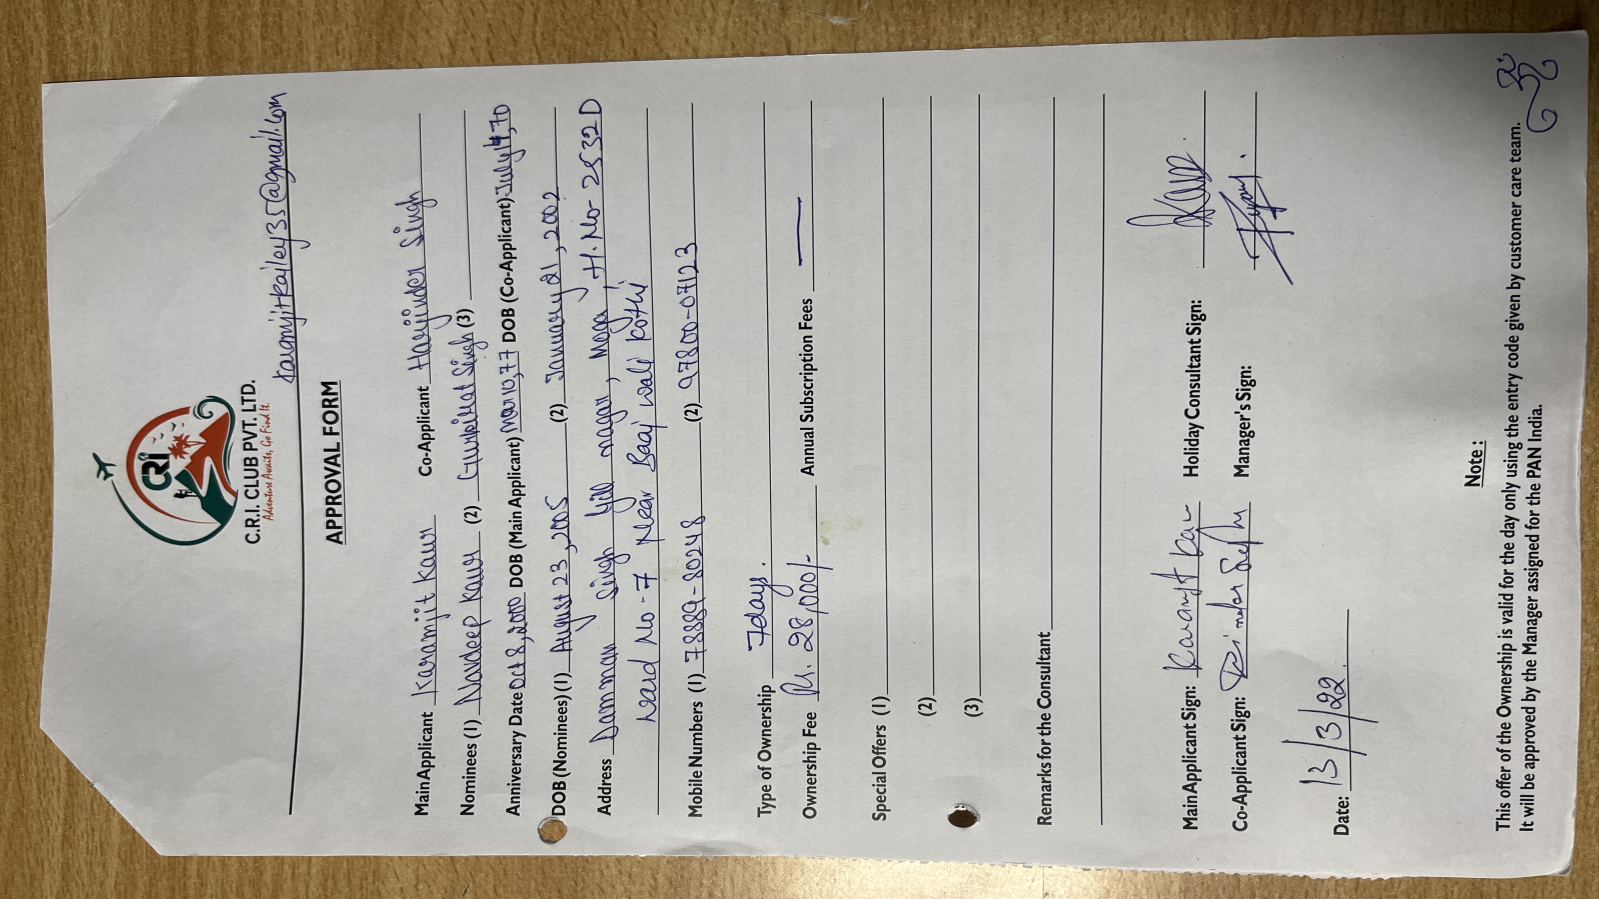 CRI
C.R.I. CLUB PVT. LTD.
Adventure Awaits, Go Find It.
karamjitkailey35@gmail.com
APPROVAL FORM
Main Applicant Karamjit Kaur Co-Applicant Harjinder Singh
Nominees (1) Navdeep Kaur (2) Gurkirat Singh (3)
Anniversary Date Oct 8, 2000 DOB (Main Applicant) Mar 10, 77 DOB (Co-Applicant) July 14, 70
DOB (Nominees) (1) August 23, 2005 (2) January 21, 2002
Address Damman Singh Gill nagar, Moga, H.No- 2532D
ward No-7 Near Baaj wali Kothi
Mobile Numbers (1) 78889-80248 (2) 97800-07123
Type of Ownership 7days.
Ownership Fee Rs. 28,000/- Annual Subscription Fees —
Special Offers (1)
(2)
(3)
Remarks for the Consultant
Main Applicant Sign: Karamjit Kaur Holiday Consultant Sign:
Co-Applicant Sign: Manager's Sign:
Date: 13/3/22
Note :
This offer of the Ownership is valid for the day only using the entry code given by customer care team.
It will be approved by the Manager assigned for the PAN India.